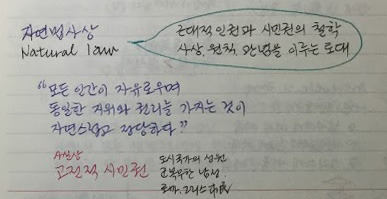 자연법사상
Natural law
근대적 인권과 시민권의 철학
사상, 원칙, 관념을 이루는 토대
"모든 인간이 자유로우며
동일한 지위와 권리를 가지는 것이
자연스럽고 정당하다"
사실상
고전적 시민권
도시국가의 성원
군복무한 남성
로마, 그리스 市民